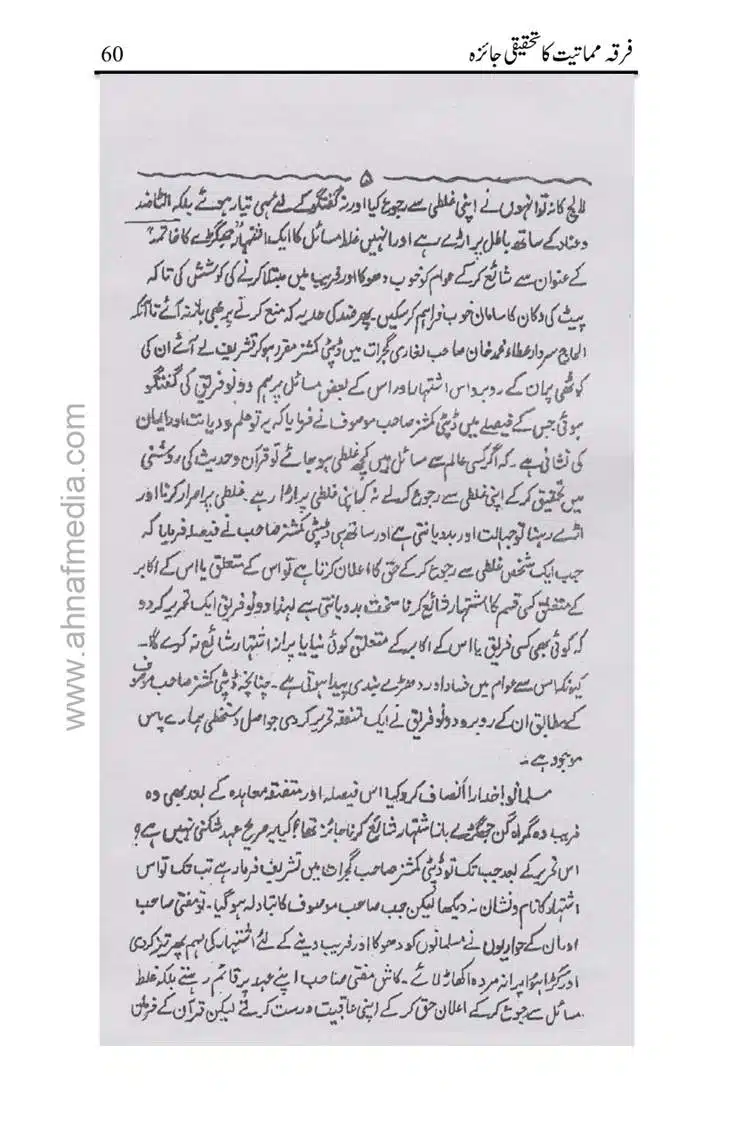 فرقہ مماتیت کا تحقیقی جائزہ 60
۵
لالچ کا نہ تو انہوں نے اپنی غلطی سے رجوع کیا اور نہ گفتگو کے لئے ہی تیار ہوئے بلکہ الٹا ضد
و عناد کے ساتھ باطل پر اڑے رہے اور انہیں غلط مسائل کا ایک اشتہار "جھگڑے کا خاتمہ"
کے عنوان سے شائع کرکے عوام کو خوب دھوکا اور فریب میں مبتلا کرنے کی کوشش کی تا کہ
پیٹ کی دکان کا سامان خوب فراہم کرسکیں پھر ضد کی حد یہ کہ منع کرنے پر بھی باز نہ آئے تا آنکہ
الحاج سردار عطاء محمد خان صاحب لغاری گجرات میں ڈپٹی کمشنر مقرر ہو کر تشریف لے آئے ان کی
کوٹھی پر ان کے روبرو اس اشتہار اور اس کے بعض مسائل پر ہم دونو فریق کی گفتگو
ہوئی جس کے فیصلے میں ڈپٹی کمشنر صاحب موصوف نے فرمایا کہ یہ تو علم و دیانت اور ایمان
کی نشانی ہے ۔ کہ اگر کسی عالم سے مسائل میں کچھ غلطی ہو جائے تو قرآن و حدیث کی روشنی
میں تحقیق کر کے اپنی غلطی سے رجوع کرلے نہ کہ اپنی غلطی پر اڑا رہے ۔ غلطی پر اصرار کرنا اور
اڑے رہنا تو جہالت اور بددیانتی ہے اور ساتھ ہی ڈپٹی کمشنر صاحب نے فیصلہ فرمایا کہ
جب ایک شخص غلطی سے رجوع کر کے حق کا اعلان کرتا ہے تو اس کے متعلق یا اس کے اکابر
کے متعلق کسی قسم کا اشتہار شائع کرنا سخت بددیانتی ہے لہذا دونو فریق ایک تحریر کردو
کہ کوئی بھی کسی فریق یا اس کے اکابر کے متعلق کوئی نیا یا پرانہ اشتہار شائع نہ کرے گا۔
کیونکہ اس سے عوام میں فساد اور دھڑے بندی پیدا ہوتی ہے ۔ چنانچہ ڈپٹی کمشنر صاحب موصوف
کے مطابق ان کے روبرو دونو فریق نے ایک متفقہ تحریر کردی جو اصل دستخطی ہمارے پاس
موجود ہے ۔
مسلمانو! خدارا انصاف کرو کیا اس فیصلہ اور متفقہ معاہدہ کے بعد بھی وہ
فریب دہ گمراہ کن جھگڑے باز اشتہار شائع کرنا جائز تھا؟ کیا یہ صریح عہد شکنی نہیں ہے؟
اس تحریر کے بعد جب تک تو ڈپٹی کمشنر صاحب گجرات میں تشریف فرما رہے تب تک تو اس
اشتہار کا نام و نشان نہ دیکھا لیکن جب صاحب موصوف کا تبادلہ ہو گیا ۔ تو مفتی صاحب
اور ان کے حواریوں نے مسلمانوں کو دھوکا اور فریب دینے کے لئے اشتہار کی مہم پھر تیز کردی
اور گڑا ہوا پرانہ مردہ اکھاڑ لائے ۔ کاش مفتی صاحب اپنے عہد پر قائم رہتے بلکہ غلط
مسائل سے رجوع کرکے اعلان حق کر کے اپنی عاقبت درست کرلیتے لیکن قرآن کے فرمان
www.ahnafmedia.com